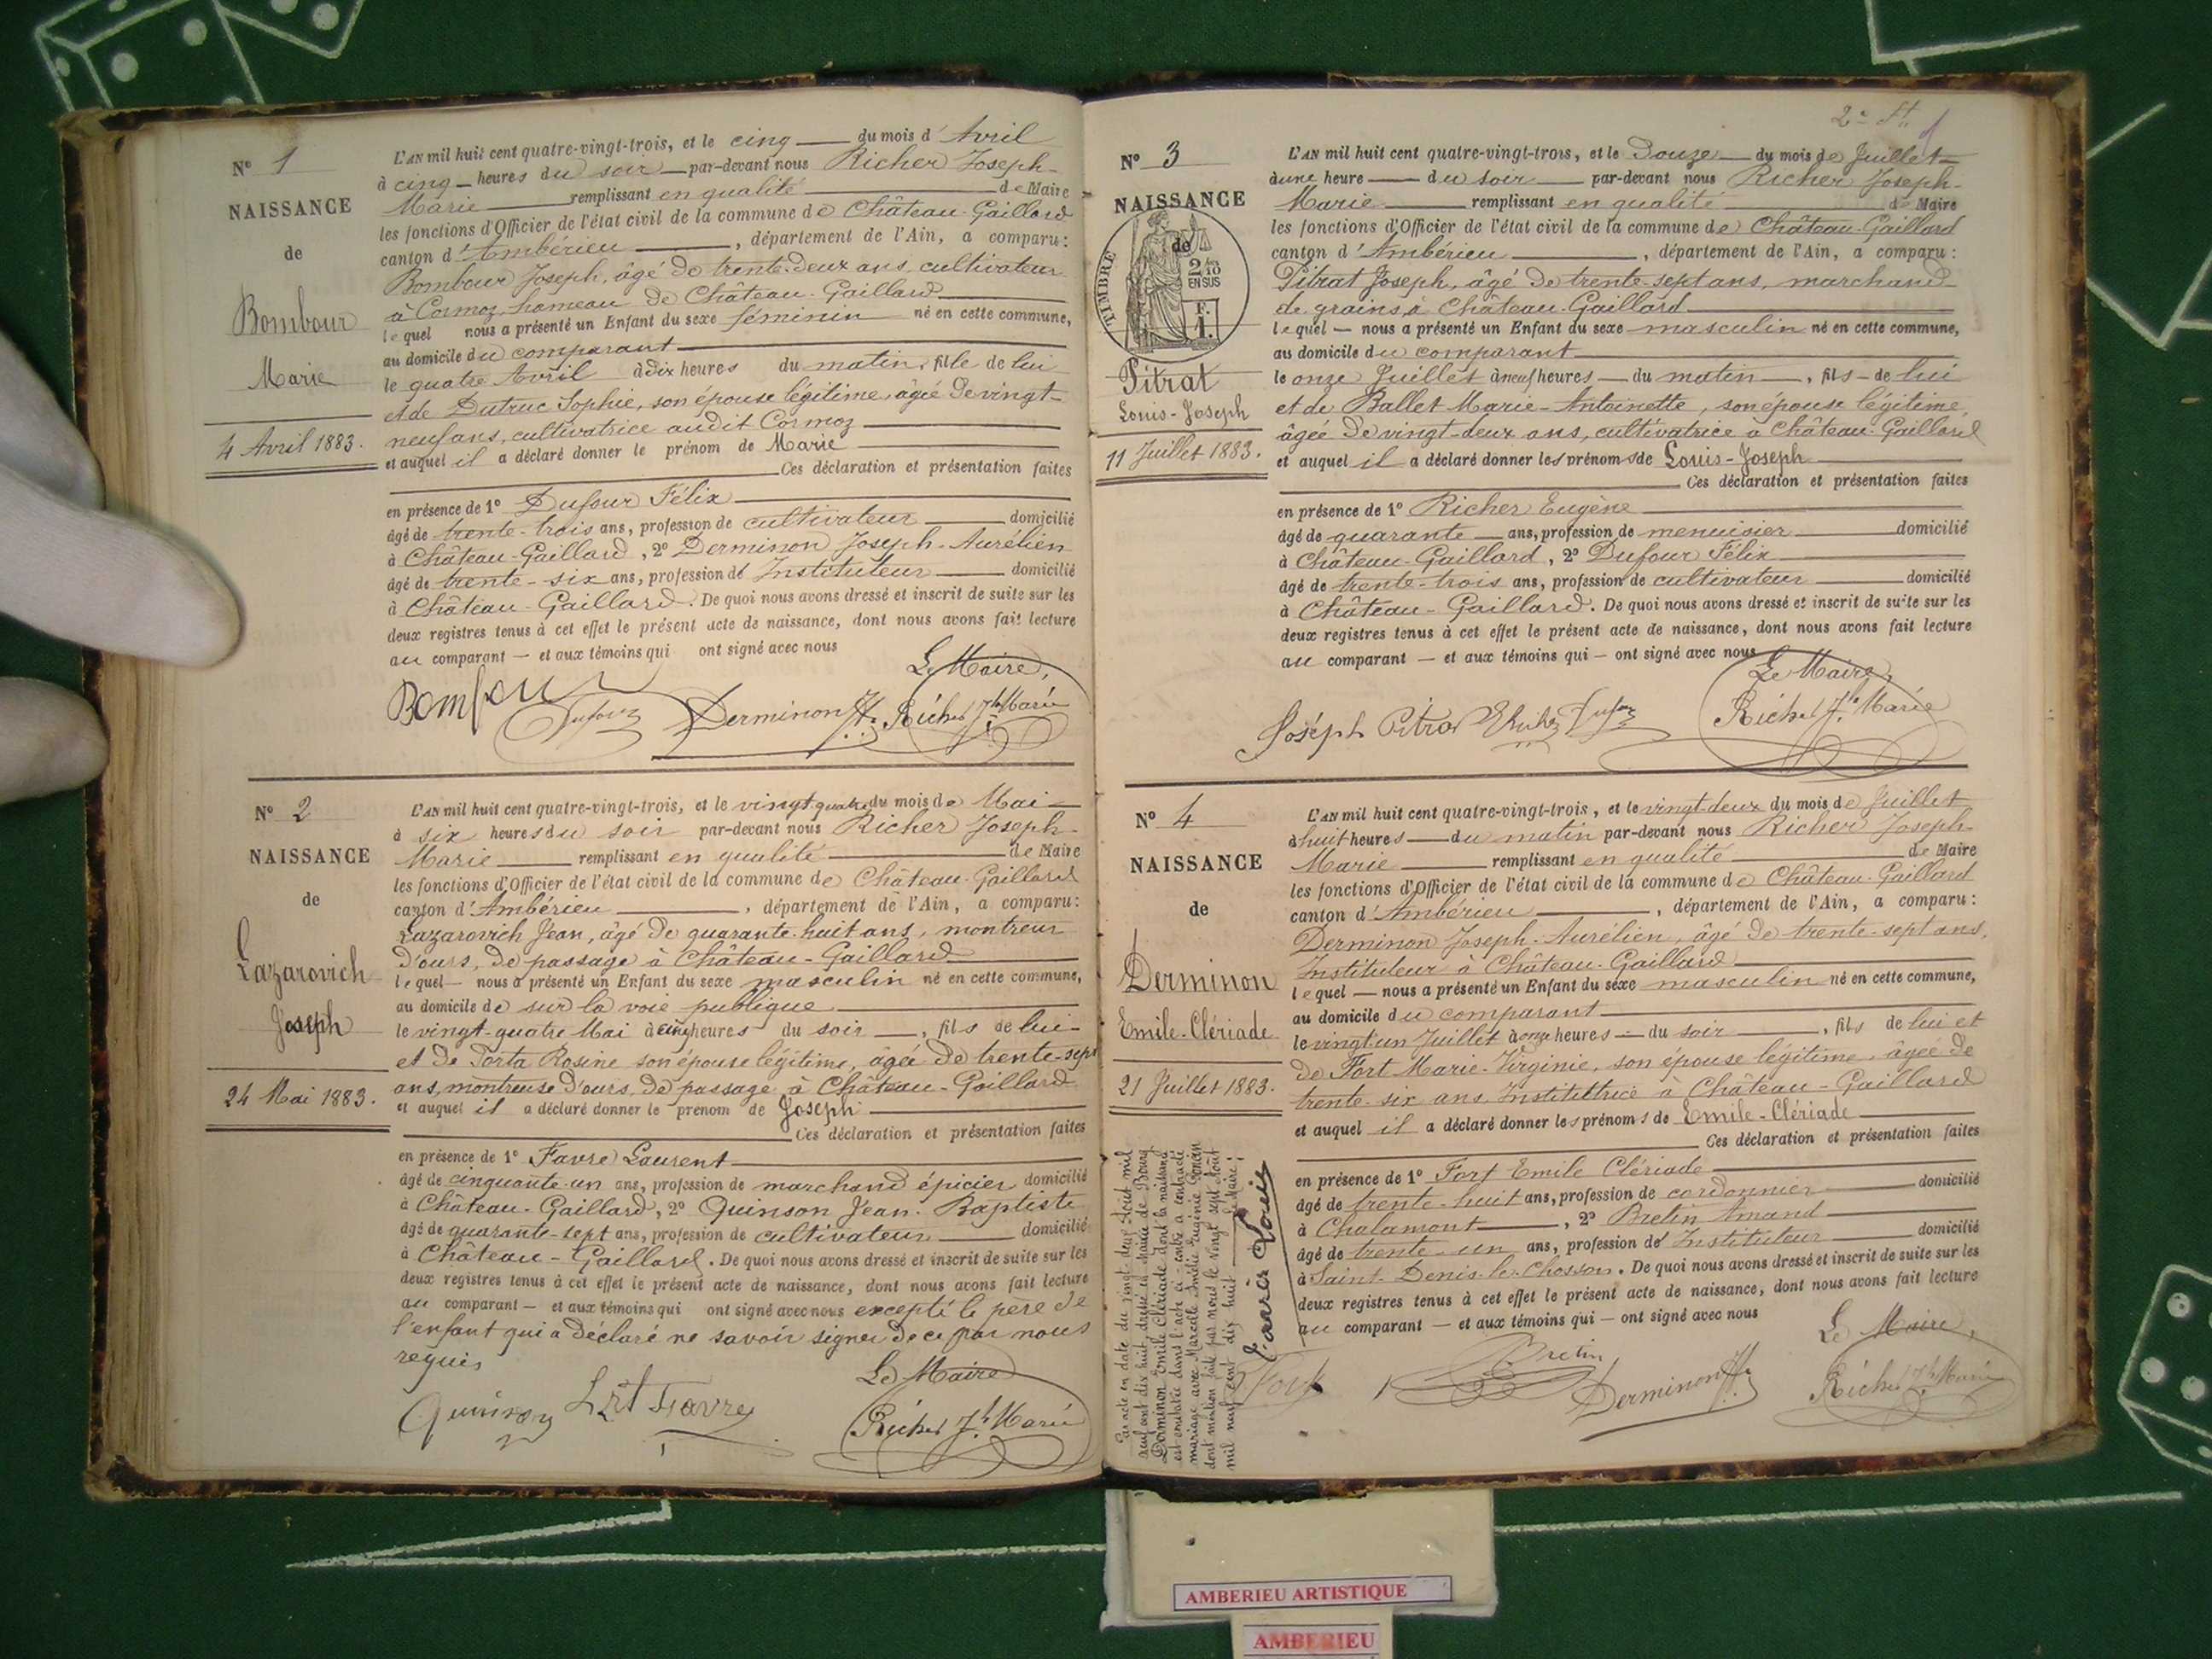 N° 1
NAISSANCE
de
Bombour
Marie
4 Avril 1883.
L'AN mil huit cent quatre-vingt-trois, et le cinq du mois d'Avril
à cinq heures du soir par-devant nous Richer Joseph-
Marie remplissant en qualité de Maire
les fonctions d'Officier de l'état civil de la commune de Château-Gaillard
canton d'Ambérieu, département de l'Ain, a comparu:
Bombour Joseph, âgé de trente-deux ans, cultivateur
à Cormoz hameau de Château-Gaillard
lequel nous a présenté un Enfant du sexe féminin né en cette commune,
au domicile du comparant
le quatre Avril à dix heures du matin, fille de lui
et de Dutruc Sophie, son épouse légitime, âgée de vingt-
neuf ans, cultivatrice audit Cormoz
et auquel il a déclaré donner le prénom de Marie
Ces déclaration et présentation faites
en présence de 1° Dufour Félix
âgé de trente-trois ans, profession de cultivateur domicilié
à Château-Gaillard, 2° Derminon Joseph-Aurélien
âgé de trente-six ans, profession de Instituteur domicilié
à Château-Gaillard. De quoi nous avons dressé et inscrit de suite sur les
deux registres tenus à cet effet le présent acte de naissance, dont nous avons fait lecture
au comparant — et aux témoins qui ont signé avec nous
Le Maire,
Bombour Dufour Derminon Jh. Richer Jh Marie
N° 2
NAISSANCE
de
Lazarovich
Joseph
24 Mai 1883.
L'AN mil huit cent quatre-vingt-trois, et le vingt-quatre du mois de Mai
à six heures du soir par-devant nous Richer Joseph-
Marie remplissant en qualité de Maire
les fonctions d'Officier de l'état civil de la commune de Château-Gaillard
canton d'Ambérieu, département de l'Ain, a comparu:
Lazarovich Jean, âgé de quarante-huit ans, montreur
d'ours, de passage à Château-Gaillard
lequel — nous a présenté un Enfant du sexe masculin né en cette commune,
au domicile de sur la voie publique
le vingt-quatre Mai à cinq heures du soir, fils de lui-
et de Torta Rosine son épouse légitime, âgée de trente-sept
ans, montreuse d'ours, de passage à Château-Gaillard
et auquel il a déclaré donner le prénom de Joseph
Ces déclaration et présentation faites
en présence de 1° Favre Laurent
âgé de cinquante-un ans, profession de marchand épicier domicilié
à Château-Gaillard, 2° Quinson Jean-Baptiste
âgé de quarante-sept ans, profession de cultivateur domicilié
à Château-Gaillard. De quoi nous avons dressé et inscrit de suite sur les
deux registres tenus à cet effet le présent acte de naissance, dont nous avons fait lecture
au comparant — et aux témoins qui ont signé avec nous excepté le père de
l'enfant qui a déclaré ne savoir signer de ce par nous
requis
Le Maire
Quinson Lrt Favre Richer Jh Marie
N° 3
NAISSANCE
de
TIMBRE
2 10
EN SUS
F.
1.
Pitrat
Louis-Joseph
11 Juillet 1883.
L'AN mil huit cent quatre-vingt-trois, et le Douze du mois de Juillet
à une heure du soir par-devant nous Richer Joseph-
Marie remplissant en qualité de Maire
les fonctions d'Officier de l'état civil de la commune de Château-Gaillard
canton d'Ambérieu, département de l'Ain, a comparu:
Pitrat Joseph, âgé de trente-sept ans, marchand
de grains à Château-Gaillard
lequel — nous a présenté un Enfant du sexe masculin né en cette commune,
au domicile du comparant
le onze Juillet à neuf heures du matin, fils de lui
et de Ballet Marie-Antoinette, son épouse légitime,
âgée de vingt-deux ans, cultivatrice à Château-Gaillard
et auquel il a déclaré donner les prénoms de Louis-Joseph
Ces déclaration et présentation faites
en présence de 1° Richer Eugène
âgé de quarante ans, profession de menuisier domicilié
à Château-Gaillard, 2° Dufour Félix
âgé de trente-trois ans, profession de cultivateur domicilié
à Château-Gaillard. De quoi nous avons dressé et inscrit de suite sur les
deux registres tenus à cet effet le présent acte de naissance, dont nous avons fait lecture
au comparant — et aux témoins qui — ont signé avec nous
Le Maire,
Joséph Pitrat Dufour Richer Jh Marie
N° 4
NAISSANCE
de
Derminon
Emile-Clériade
21 Juillet 1883.
L'AN mil huit cent quatre-vingt-trois, et le vingt-deux du mois de Juillet
à huit heures du matin par-devant nous Richer Joseph-
Marie remplissant en qualité de Maire
les fonctions d'Officier de l'état civil de la commune de Château-Gaillard
canton d'Ambérieu, département de l'Ain, a comparu:
Derminon Joseph-Aurélien, âgé de trente-sept ans,
Instituteur à Château-Gaillard
lequel — nous a présenté un Enfant du sexe masculin né en cette commune,
au domicile du comparant
le vingt-un Juillet à onze heures du soir, fils de lui et
de Fort Marie-Virginie, son épouse légitime, âgée de
trente-six ans, Institutrice à Château-Gaillard
et auquel il a déclaré donner les prénoms de Emile-Clériade
Ces déclaration et présentation faites
en présence de 1° Fort Emile Clériade
âgé de trente-huit ans, profession de cordonnier domicilié
à Chalamont, 2° Bretin Amand
âgé de trente-un ans, profession de Instituteur domicilié
à Saint-Denis-le-Chosson. De quoi nous avons dressé et inscrit de suite sur les
deux registres tenus à cet effet le présent acte de naissance, dont nous avons fait lecture
au comparant — et aux témoins qui — ont signé avec nous
Le Maire,
Fort Bretin Derminon Jh. Richer Jh Marie
Par acte en date du vingt-deux Août mil
neuf cent dix huit, dressé en mairie de Bourg
Derminon Emile Clériade dont la naissance
est constatée dans l'acte ci-contre a contracté
mariage avec Marcelle Amélie Eugénie Poncin
dont mention faite par nous le vingt sept Août
mil neuf cent dix huit Le Maire:
AMBERIEU ARTISTIQUE
AMBERIEU